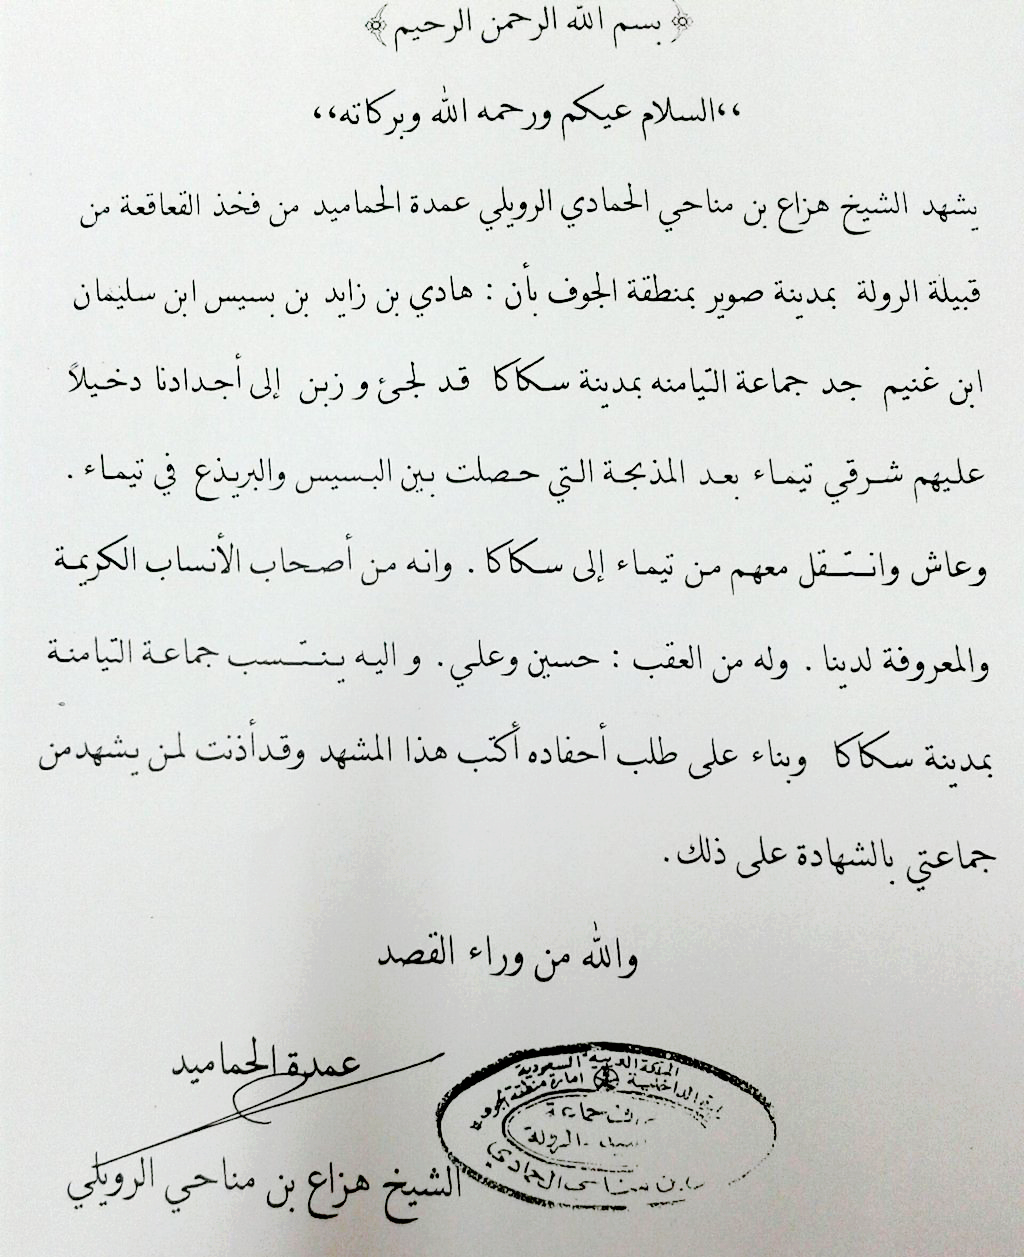 ﴿ بسم الله الرحمن الرحيم ﴾
،،السلام عيكم ورحمه الله وبركاته،،
يشهد الشيخ هزاع بن مناحي الحمادي الرويلي عمدة الحماميد من فخذ القعاقعة من
قبيلة الرولة بمدينة صوير بمنطقة الجوف بأن : هادي بن زايد بن بسيس ابن سليمان
ابن غنيم جد جماعة التيامنه بمدينة سكاكا قد لجئ و زبن إلى أجدادنا دخيلاً
عليهم شرقي تيماء بعد المذبحة التي حصلت بين البسيس والبريذع في تيماء .
وعاش وانتقل معهم من تيماء إلى سكاكا . وانه من أصحاب الأنساب الكريمة
والمعروفة لدينا . وله من العقب : حسين وعلي . و اليه ينتسب جماعة التيامنة
بمدينة سكاكا وبناء على طلب أحفاده أكتب هذا المشهد وقدأذنت لمن يشهدمن
جماعتي بالشهادة على ذلك .
والله من وراء القصد
عمدة الحماميد
الشيخ هزاع بن مناحي الرويلي
المملكة العربية السعودية
الداخلية امارة منطقة الجوف
جماعة
الرولة
بن مناحي الحمادي